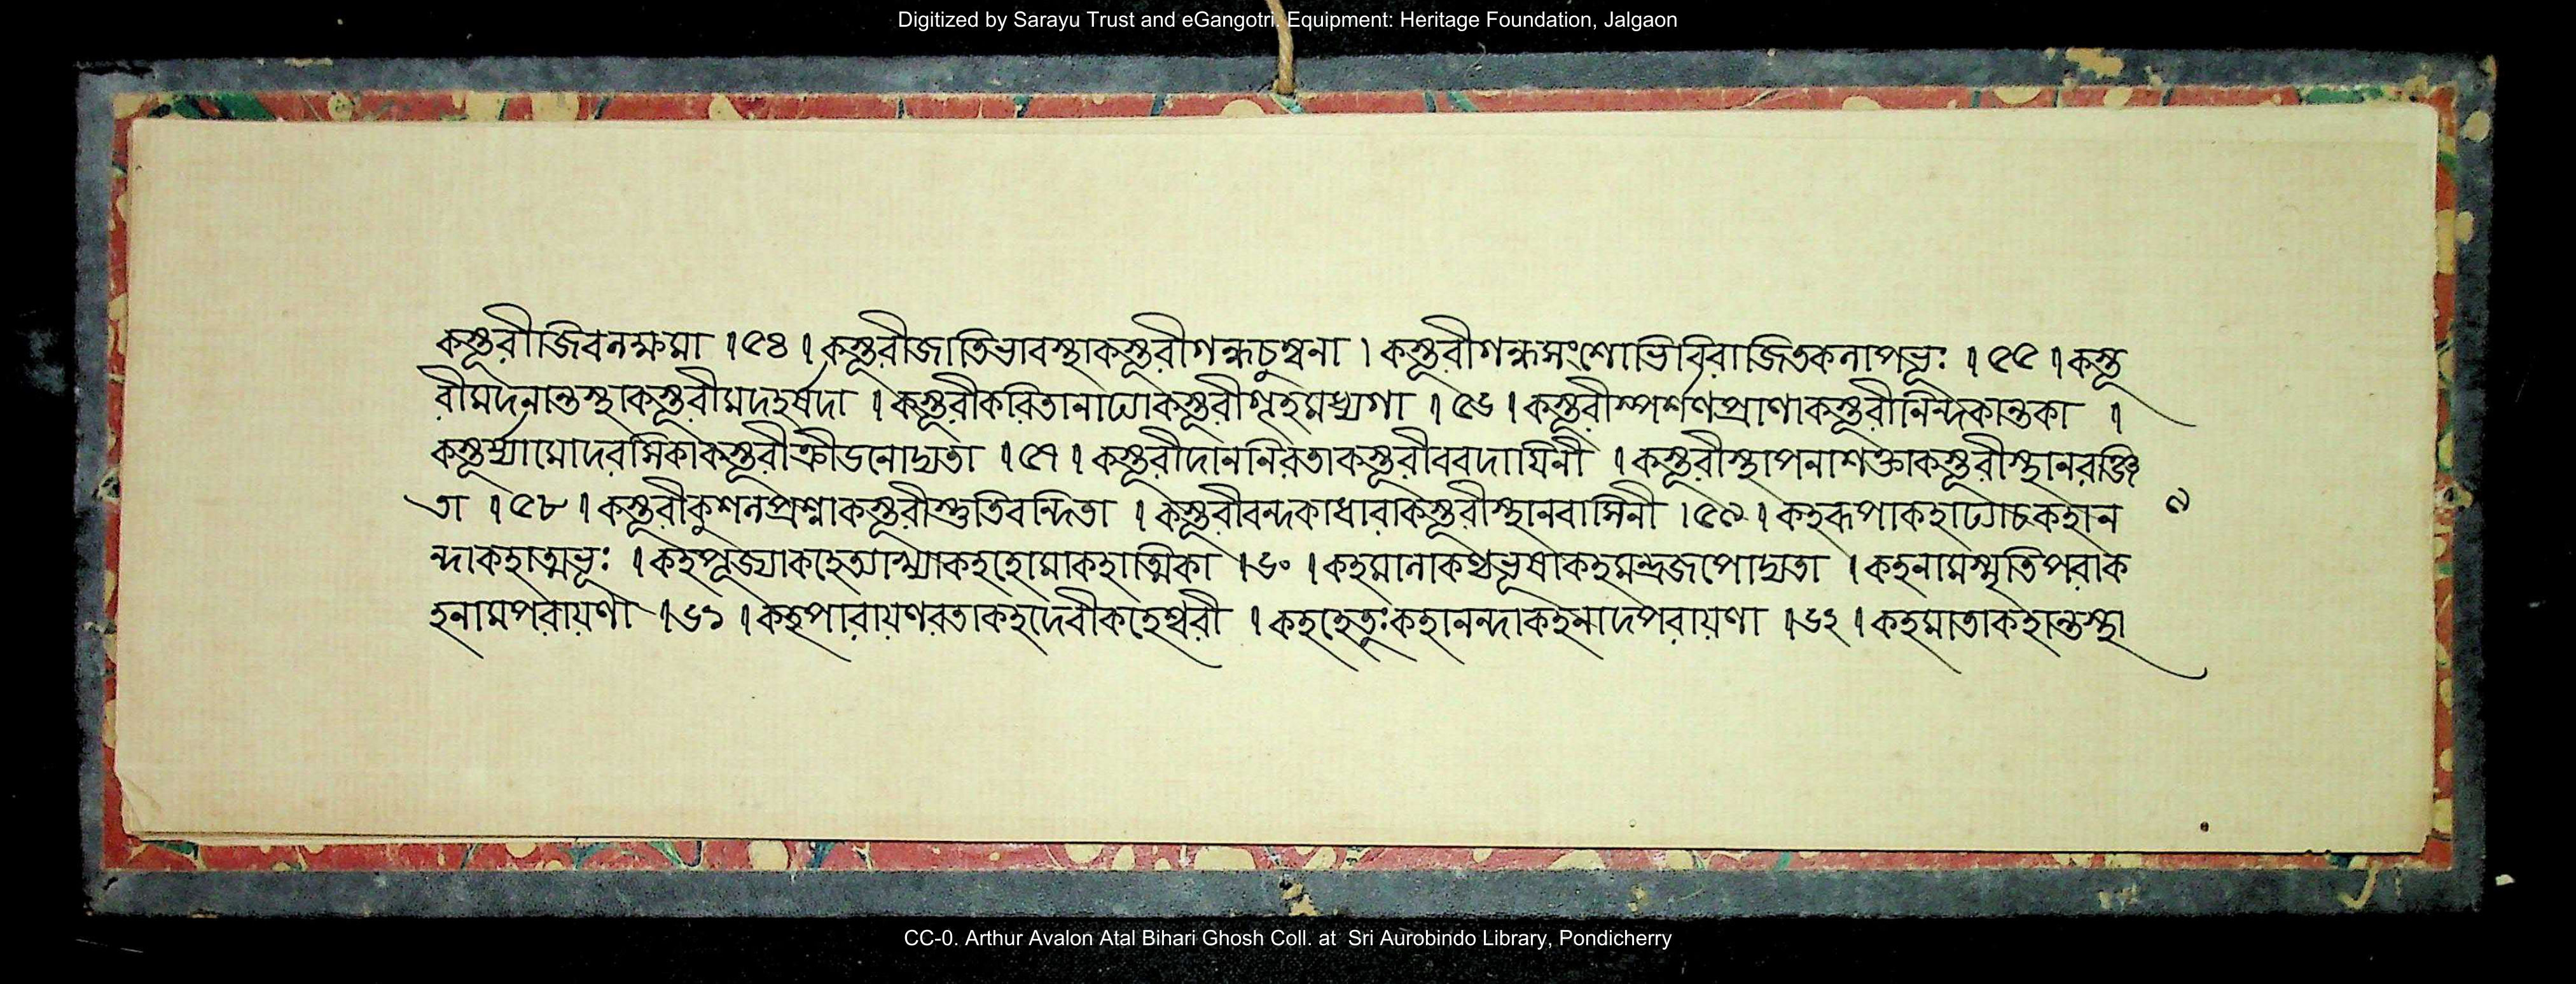 Digitized by Sarayu Trust and eGangotri. Equipment: Heritage Foundation, Jalgaon
কস্তূরীজিবনক্ষমা ।৫৪। কস্তূরীজাতিভাবস্থাকস্তূরীগন্ধচুম্বনা । কস্তূরীগন্ধসংশোভিবিরাজিতকলাপভূঃ ।৫৫। কস্তূ
রীমদনান্তস্থাকস্তূরীমদহর্ষদা । কস্তূরীকরিতানাঢ্যাকস্তূরীগৃহমধ্যগা ।৫৬। কস্তূরীস্পর্শণপ্রাণাকস্তূরীনিন্দকান্তকা ।
কস্তূর্য্যামোদরসিকাকস্তূরীক্রীডনোদ্যতা ।৫৭। কস্তূরীদাননিরতাকস্তূরীববদায়িনী । কস্তূরীস্থাপনাশক্তাকস্তূরীস্থানরঞ্জি
তা ।৫৮। কস্তূরীকুশলপ্রশ্নাকস্তূরীস্তুতিবন্দিতা । কস্তূরীবন্দকাধারাকস্তূরীস্থানবাসিনী ।৫৯। কহরূপাকহাঢ্যাচকহান
৯
ন্দাকহাত্মভূঃ । কহপূজ্যাকহেত্যাখ্যাকহহোমাকহাত্মিকা ।৬০। কহমানাকণ্ঠভূষাকহমন্ত্রজপোদ্যতা । কহনামস্মৃতিপরাক
হনামপরায়ণা ।৬১। কহপারায়ণরতাকহদেবীকহেশ্বরী । কহহেতূঃকহানন্দাকহনাদপরায়ণা ।৬২। কহমাতাকহান্তস্থা
CC-0. Arthur Avalon Atal Bihari Ghosh Coll. at Sri Aurobindo Library, Pondicherry